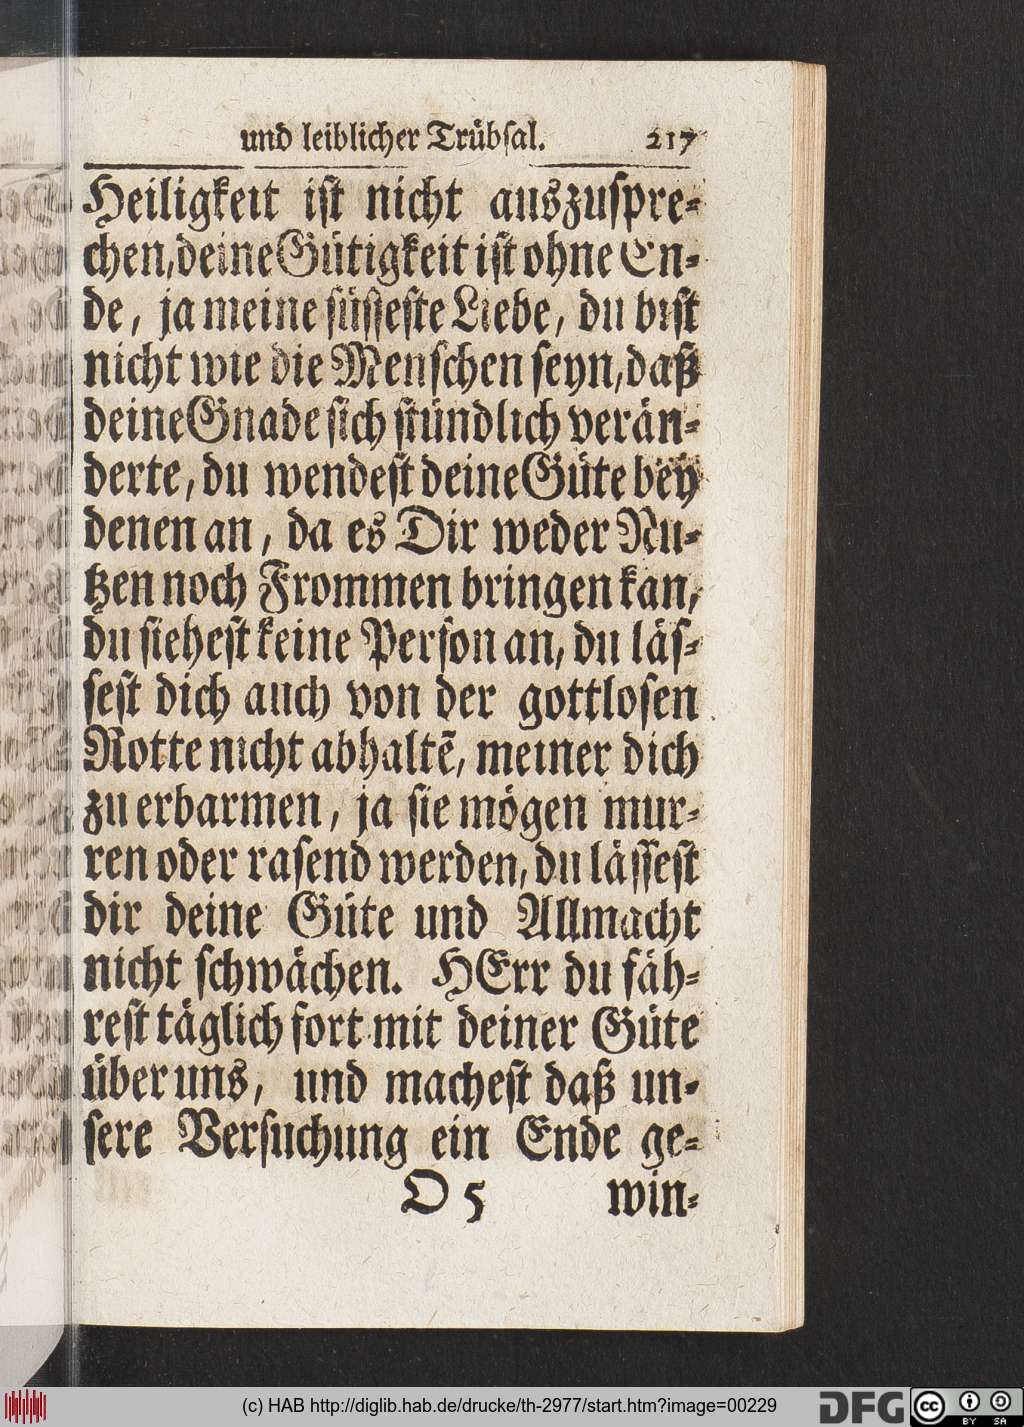 und leiblicher Trübſal. 217
Heiligkeit iſt nicht auszuſpre-
chen, deine Gütigkeit iſt ohne En-
de, ja meine ſüſſeſte Liebe, du biſt
nicht wie die Menſchen ſeyn, daß
deine Gnade ſich ſtündlich verän-
derte, du wendeſt deine Güte bey
denen an, da es Dir weder Nu-
tzen noch Frommen bringen kan,
du ſieheſt keine Perſon an, du läſ-
ſeſt dich auch von der gottloſen
Rotte nicht abhaltē, meiner dich
zu erbarmen, ja ſie mögen mur-
ren oder raſend werden, du läſſeſt
dir deine Güte und Allmacht
nicht ſchwächen. HErr du fäh-
reſt täglich fort mit deiner Güte
über uns, und macheſt daß un-
ſere Verſuchung ein Ende ge-
O 5 win-
(c) HAB http://diglib.hab.de/drucke/th-2977/start.htm?image=00229
DFG cc BY SA